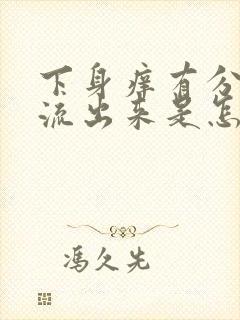 下身痒有分
流出来是怎
冯久先